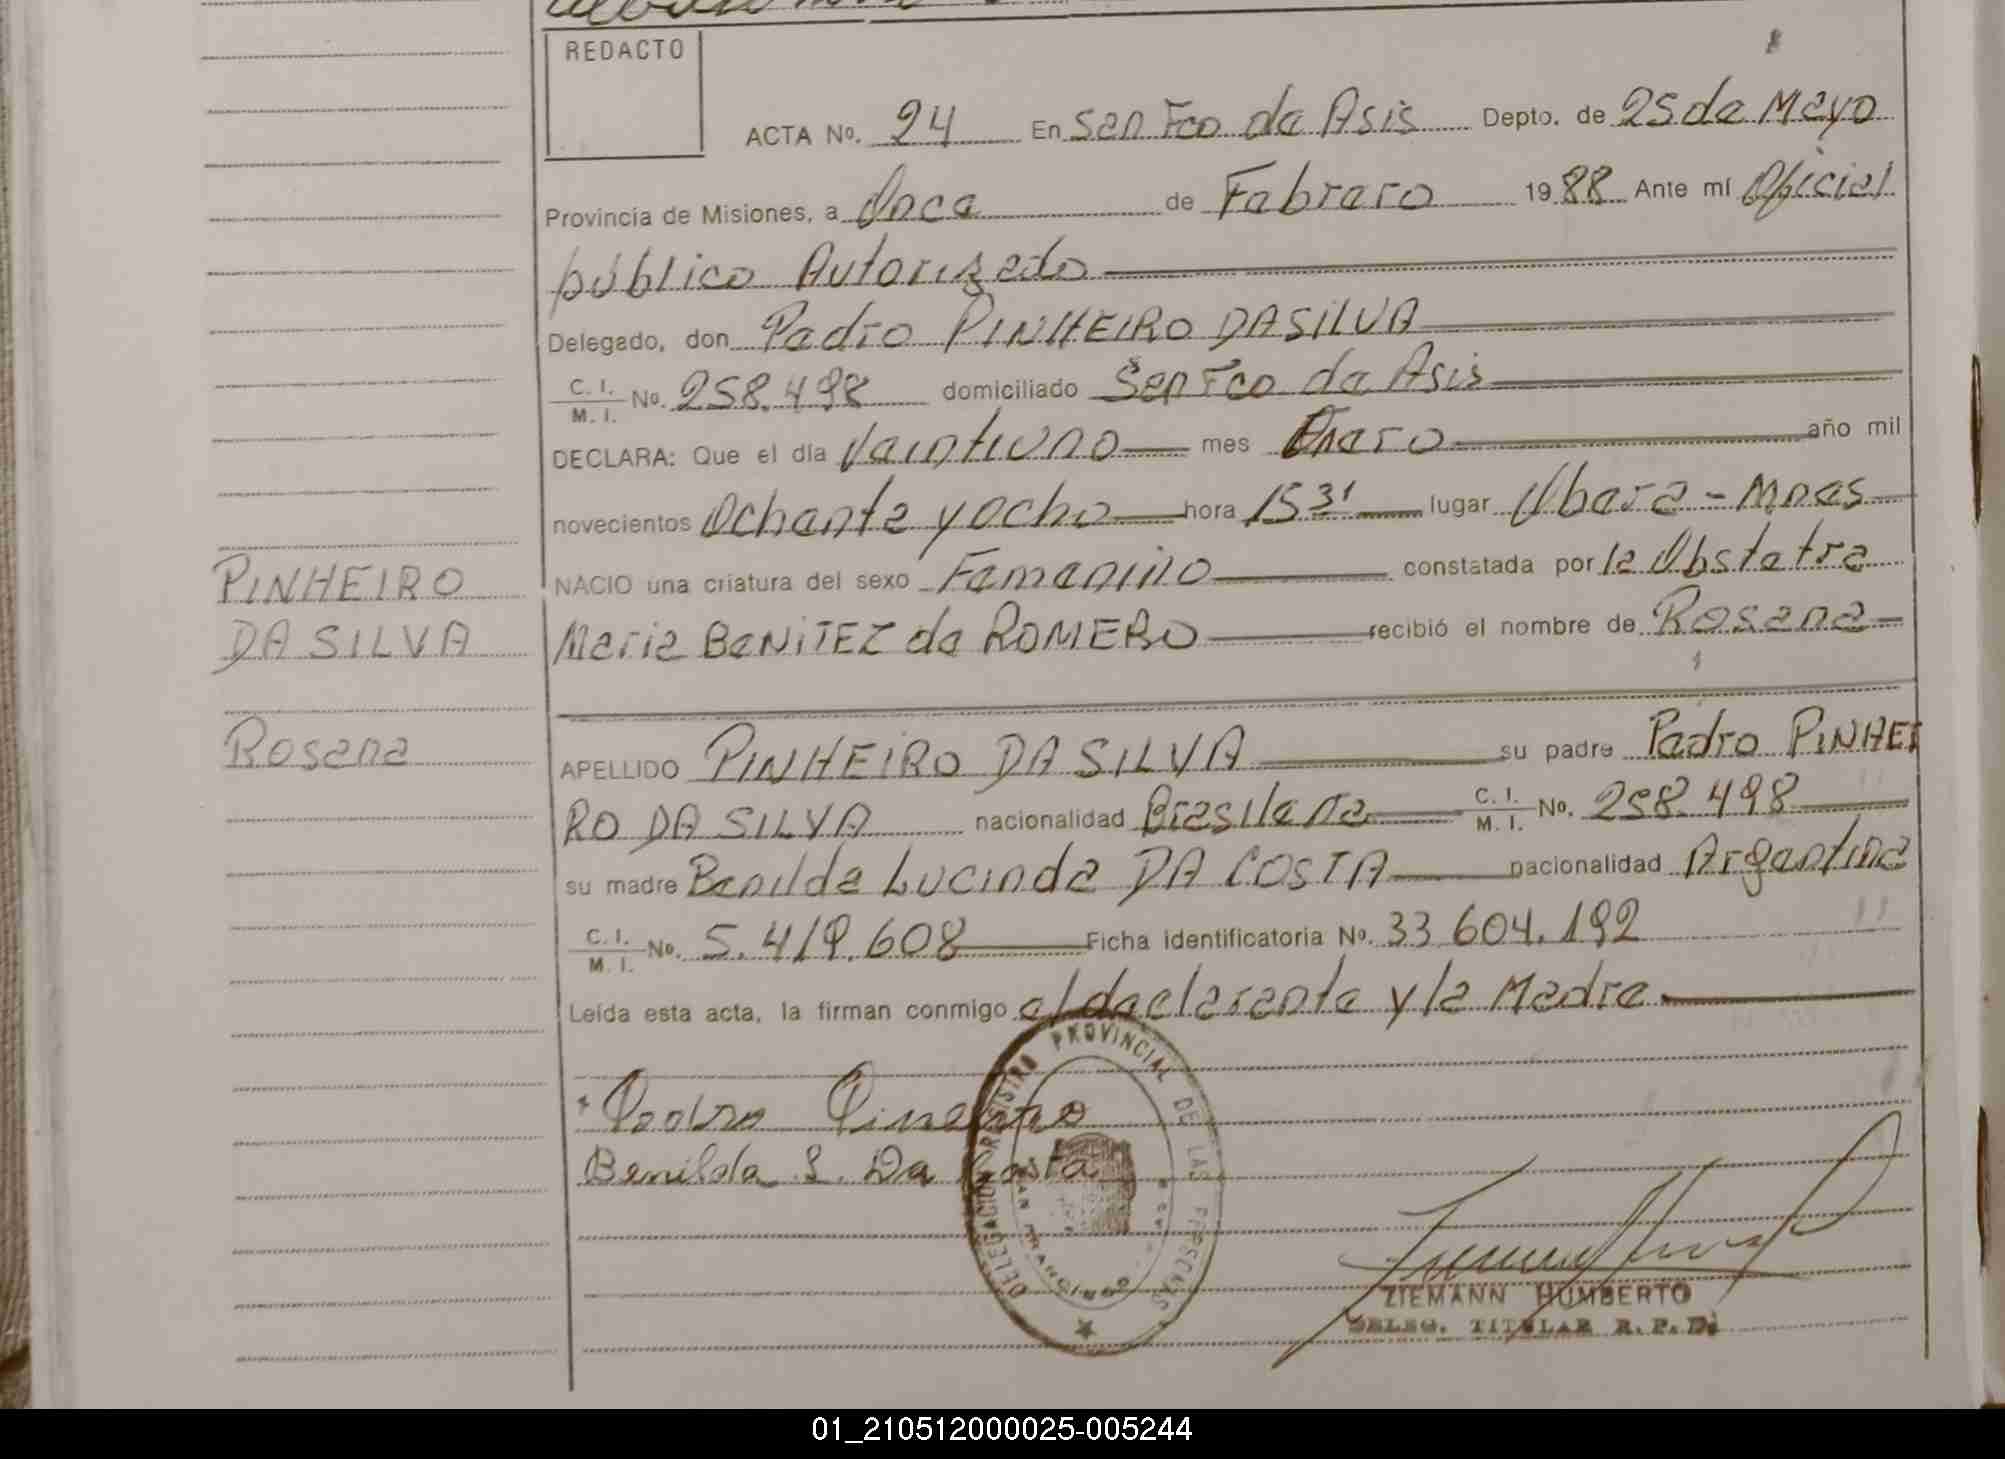 REDACTO
ACTA No. 24 En San Fco de Asis Depto. de 25 de Mayo
Provincia de Misiones, a Once de Febrero 1988 Ante mí Oficial
público Autorizado
Delegado, don Pedro PINHEIRO DA SILVA
C. I.
M. I. No. 258.498 domiciliado San Fco de Asis
DECLARA: Que el día Veintiuno mes Enero año mil
novecientos Ochenta y ocho hora 15 31 lugar Obera - Mnes
NACIO una criatura del sexo Femenino constatada por la Obstetra
Maria BENITEZ de ROMERO recibió el nombre de Rosana
PINHEIRO
DA SILVA
Rosana
APELLIDO PINHEIRO DA SILVA su padre Pedro PINHEI
RO DA SILVA nacionalidad Brasileña C. I.
M. I. No. 258.498
su madre Benilda Lucinda DA COSTA nacionalidad Argentina
C. I.
M. I. No. 5.419.608 Ficha identificatoria No. 33.604.192
Leída esta acta, la firman conmigo el declarante y la Madre
Pedro Pinheiro
Benilda L. Da Costa
DELEGACION REGISTRO PROVINCIAL DE LAS PERSONAS
ZIEMANN HUMBERTO
DELEG. TITULAR R. P. D.
01_210512000025-005244